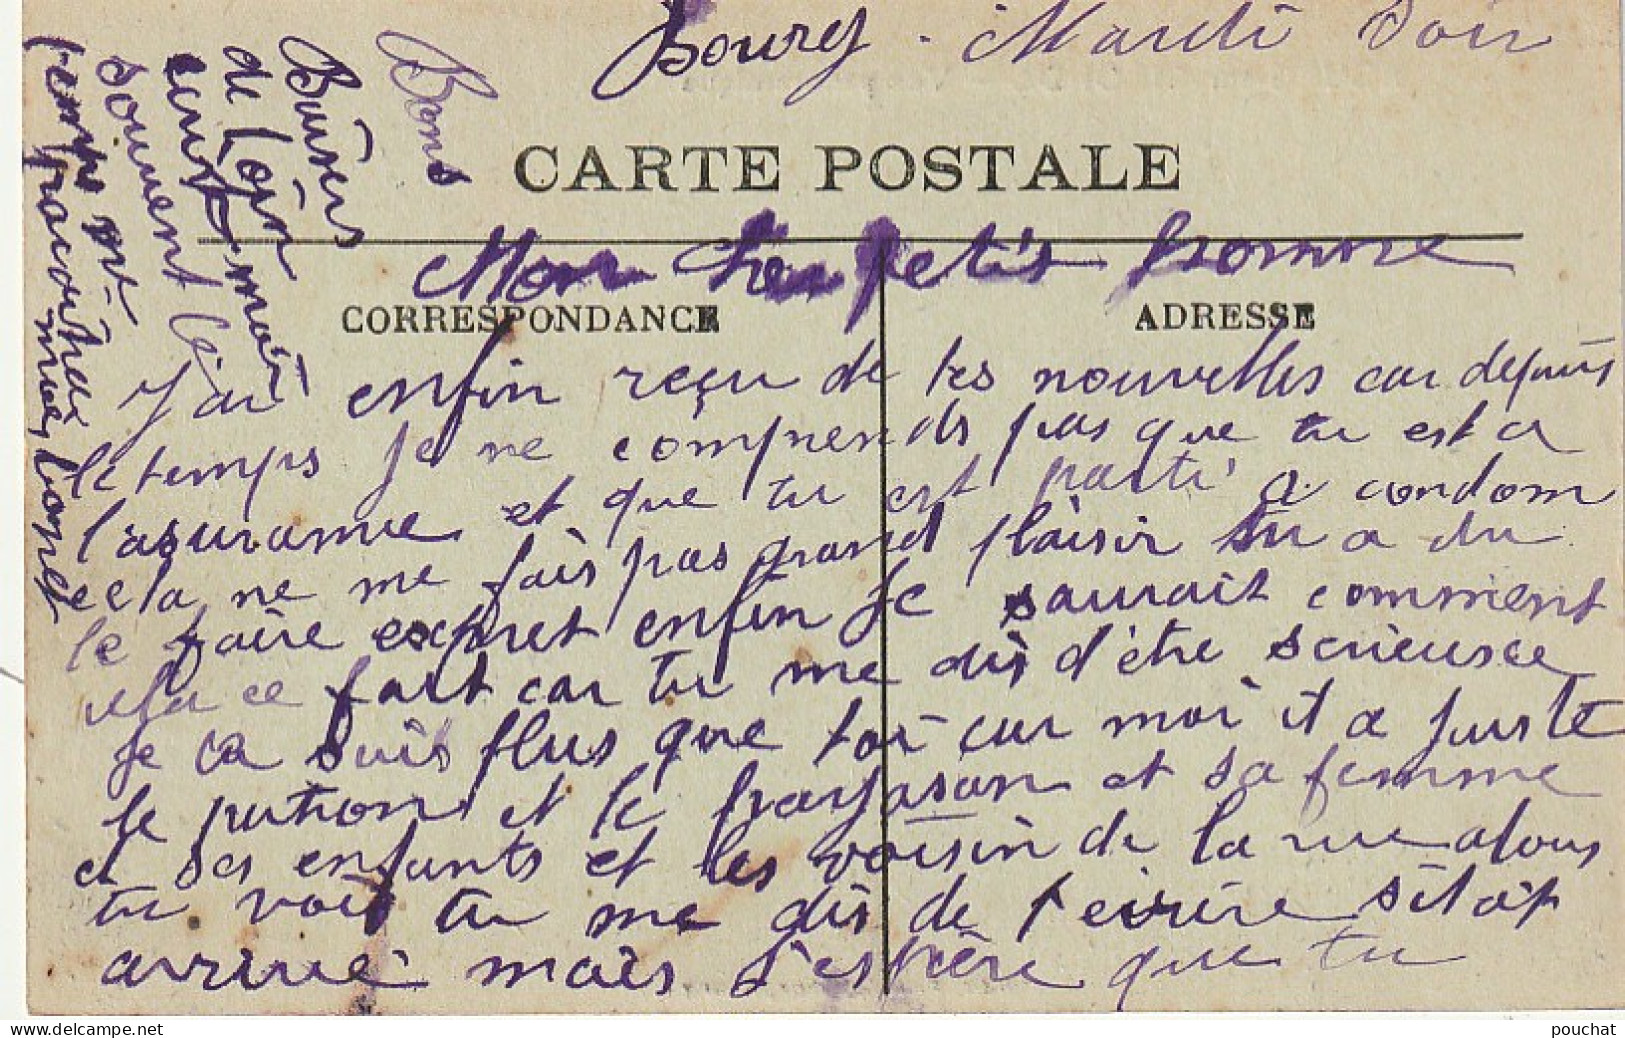 Bourg - Mardi Soir
CARTE POSTALE
Mon Cher petit homme
CORRESPONDANCE
ADRESSE
J'ai enfin reçu de tes nouvelles car depuis
le temps je ne comprends pas que tu est a
l'asurance et que tu est parti a condom
cela ne me fais pas grand plaisir tu a du
le faire expret enfin je saurait comment
cela ce fait car tu me dis d'être serieusee
je ca suis plus que toi car moi il a juste
le patron et le garson et sa femme
et ses enfants et les voisin de la rue alors
tu vois tu me dis de t'ecrire sitôt
arrivé mais j'espère que tu
Bons
Baisers
de Loin
ecrit moi
souvent
temps
mais bonne
pouchat
delcampe.net